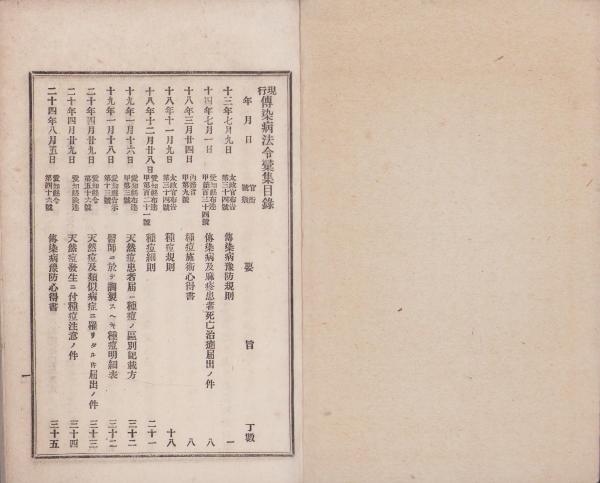 現行傳染病法令彙集目錄
年月日 官衙號數 要旨 丁數
十三年七月九日 太政官布告第三十四號 傳染病豫防規則 一
十四年七月一日 愛知縣布達甲第百三十四號 傳染病及麻疹患者死亡治癒屆出ノ件 八
十八年三月廿四日 內務省甲第九號 種痘施術心得書 八
十八年十一月九日 太政官布告第三十四號 種痘規則 十八
十八年十二月廿八日 愛知縣布達甲第百二十一號 種痘細則 二十一
十九年一月十六日 愛知縣布達甲第三號 天然痘患者屆ニ種痘ノ區別記載方 三十二
十九年一月十八日 愛知縣告示第十三號 醫師ニ於テ調製スヘキ種痘明細表 三十二
二十年四月廿九日 愛知縣令第五十六號 天然痘及類似病症ニ罹リタル片屆出ノ件 三十三
二十年四月廿九日 愛知縣 天然痘發生ニ付種痘注意ノ件 三十四
二十四年八月五日 愛知縣令第四十六號 傳染病豫防心得書 三十五
一